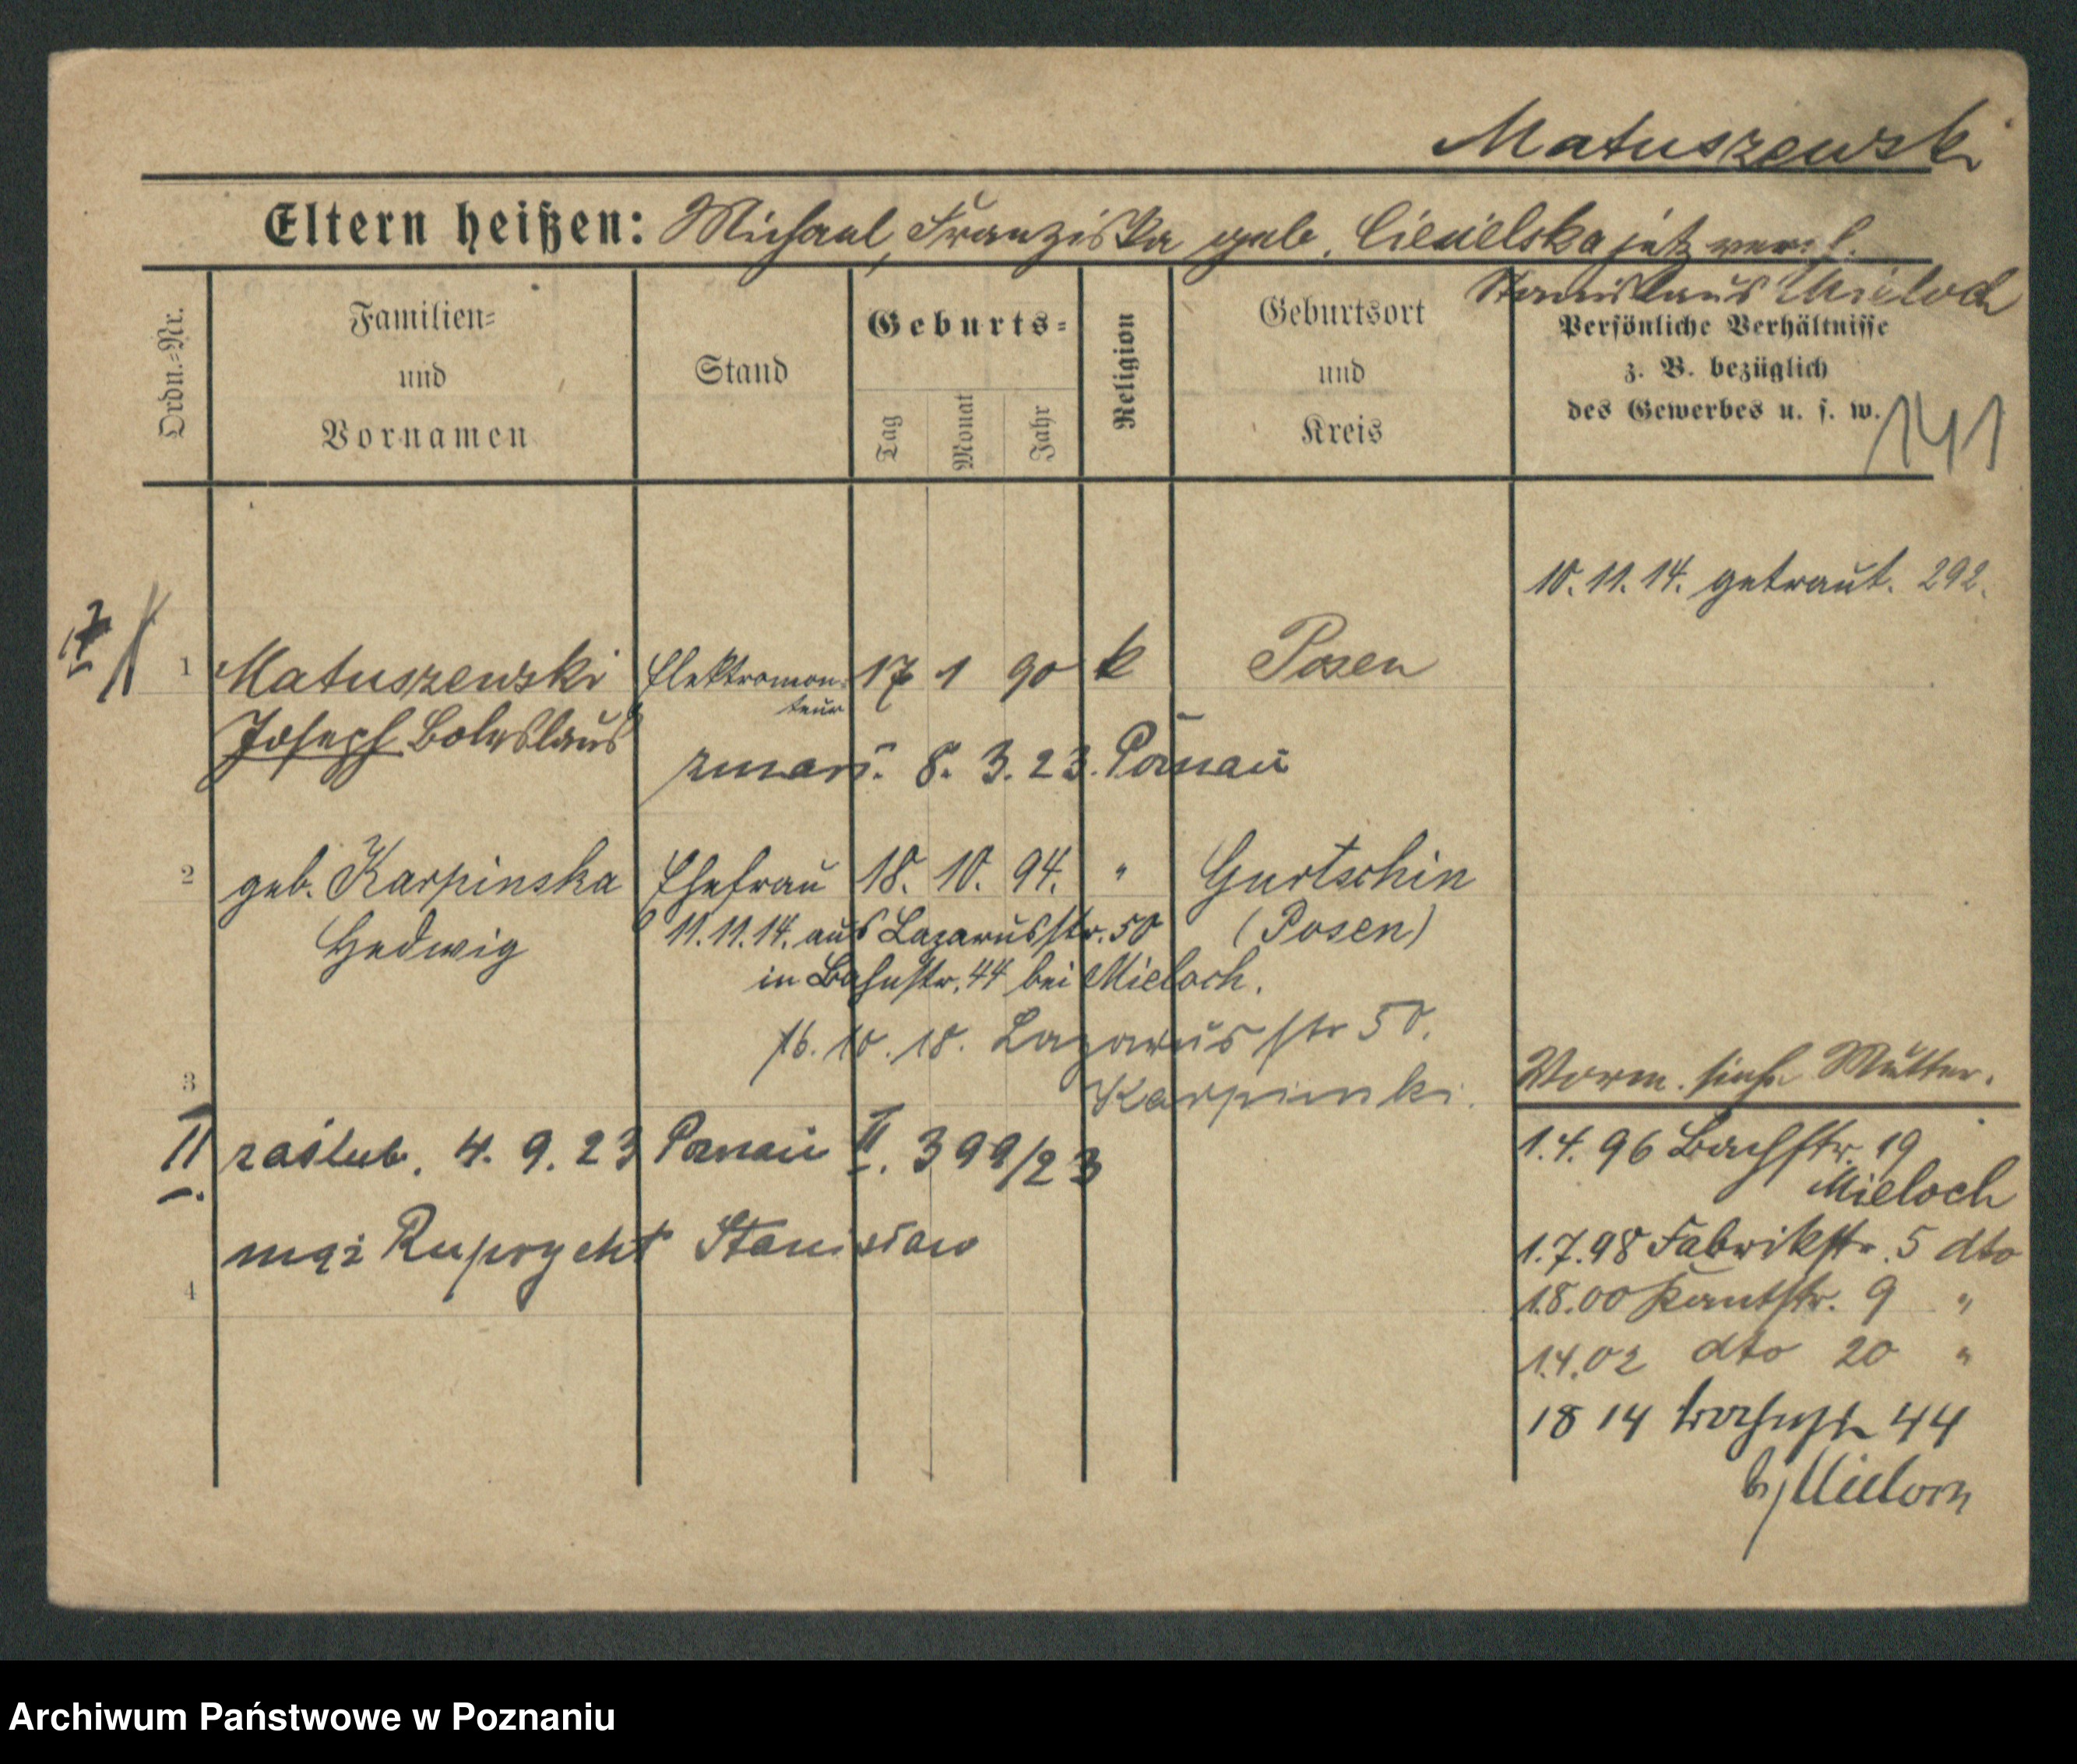 Matuszewski
Eltern heißen: Michael, Franziska geb. Cieuielska jetz verh.
Stanislaus Mieloch
Ordn.=Nr.
Familien=
und
Vornamen
Stand
Geburts=
Tag
Monat
Jahr
Religion
Geburtsort
und
Kreis
Persönliche Verhältnisse
z. B. bezüglich
des Gewerbes u. s. w.
141
10.11.14. getraut. 292.
17
1 Matuszewski Elektromon- 17 1 90 k Posen
teur
Joseph Boleslaus
zmarł. 8. 3. 23. Poznań
2 geb. Karpinska Ehefrau 18. 10. 94. " Gurtschin
Hedwig 11.11.14. aus Lazarusstr. 50 (Posen)
in Bahnstr. 44 bei Mieloch.
16. 10. 18. Lazarus str 50.
Karpinski.
3
Vorm. siehe Mutter.
II zaślub. 4. 9. 23 Poznań II. 399/23
mąż Ruprycht Stanisław
4
1.4.96 Bachstr. 19
Mieloch
1.7.98 Fabrikstr. 5 dto
1.8.00 Kantstr. 9 "
1.4.02 dto 20 "
18 14 Bahnstr 44
b/Mieloch
Archiwum Państwowe w Poznaniu